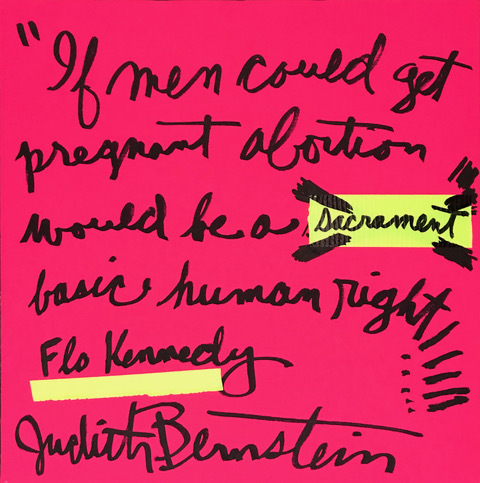 "If men could get
pregnant abortion
would be a sacrament"
basic human right
Flo Kennedy
Judith Bernstein